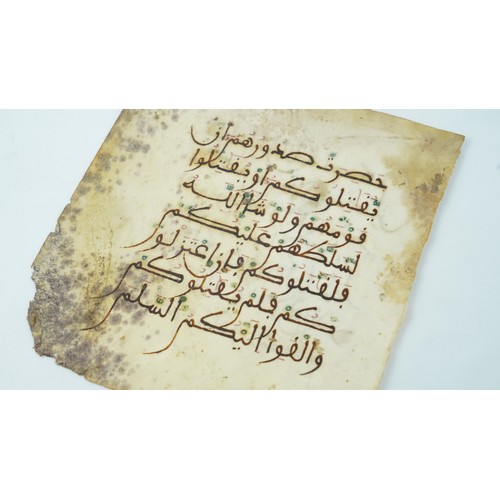 حصرت صدورهم ان
يقتلوكم او يقتلوا
قومهم ولو شا الله
لسلطهم عليكم
فلقتلوكم فإن اعتزلو
كم فلم يقتلوكم
والقوا اليكم السلم